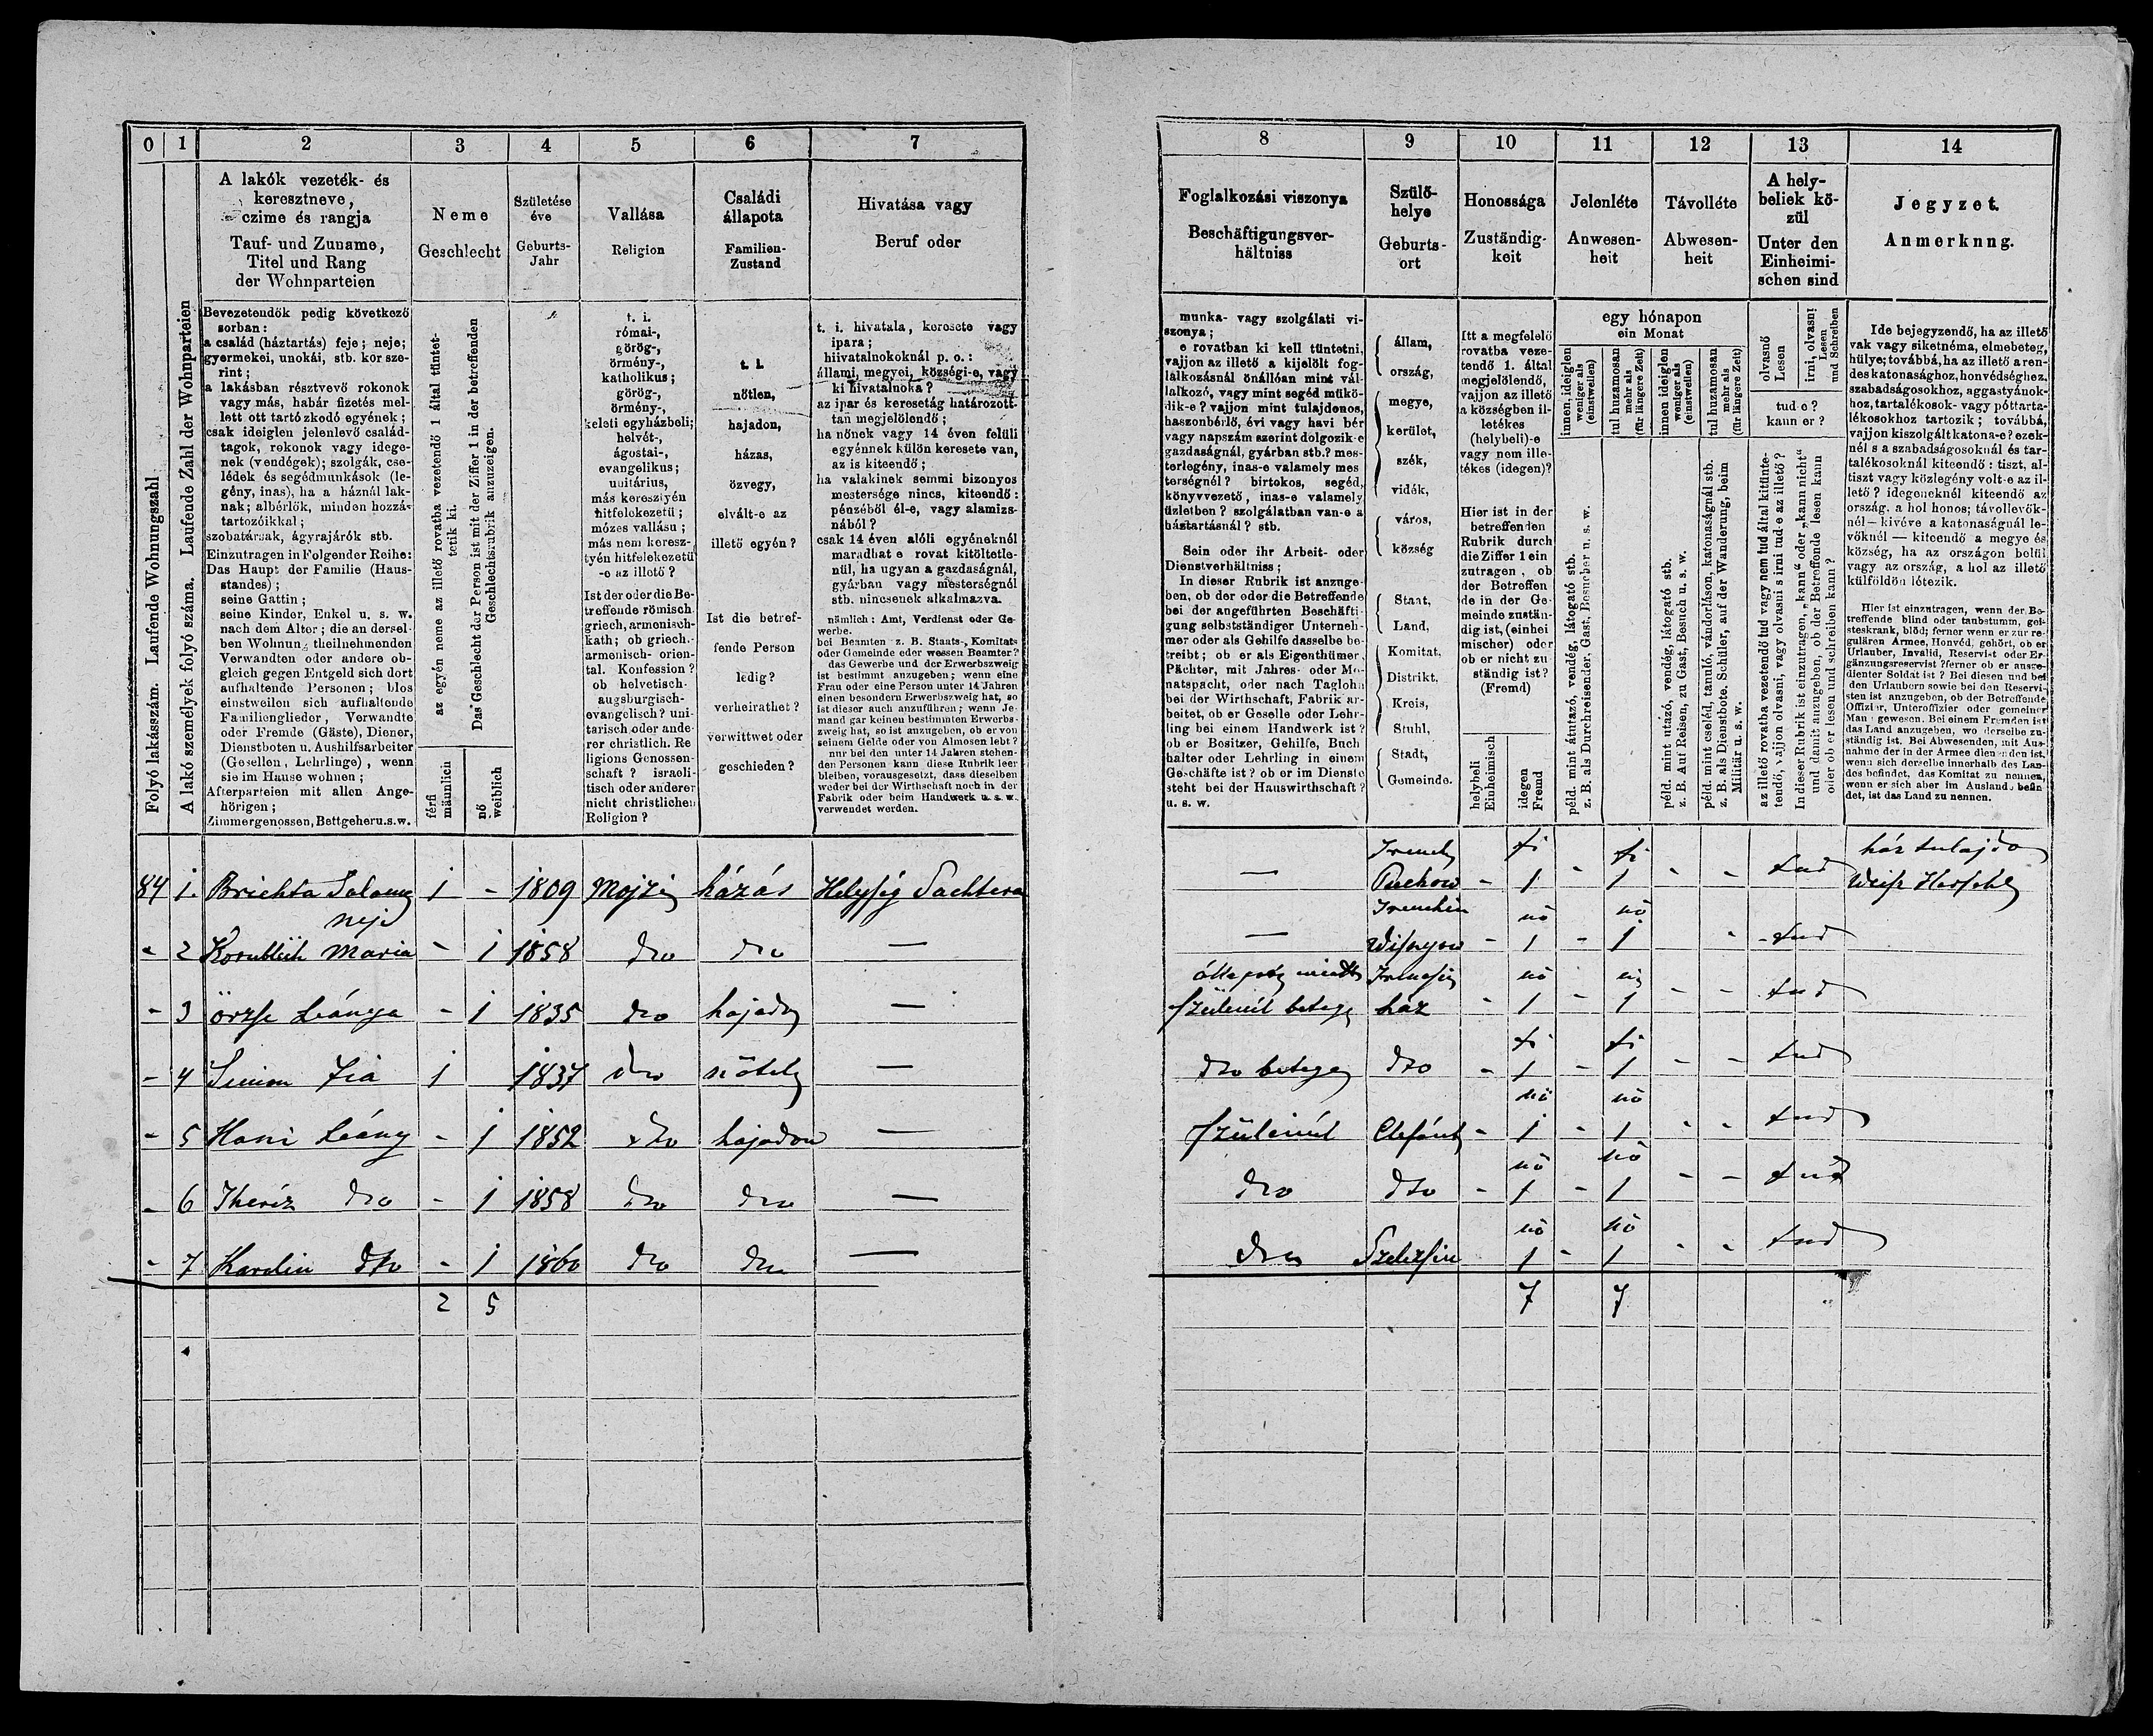 0 1 2 3 4 5 6 7
A lakók vezeték- és
keresztneve,
czime és rangja
Tauf- und Zuname,
Titel und Rang
der Wohnparteien
Neme
Geschlecht
Születése
éve
Geburts-
Jahr
Vallása
Religion
Családi
állapota
Familien-
Zustand
Hivatása vagy
Beruf oder
Folyó lakásszám. Laufende Wohnungszahl
A lakó személyek folyó száma. Laufende Zahl der Wohnparteien
Bevezetendők pedig következő
sorban:
a család (háztartás) feje; neje;
gyermekei, unokái, stb. kor sze-
rint;
a lakásban résztvevő rokonok
vagy más, habár fizetés mel-
lett ott tartózkodó egyének;
csak ideiglen jelenlevő család-
tagok, rokonok vagy idege-
nek (vendégek); szolgák, cse-
lédek és segédmunkások (le-
gény, inas), ha a háznál lak-
nak; albérlők, minden hozzá-
tartozóikkal;
szobatársak, ágyrajárók stb.
Einzutragen in Folgender Reihe:
Das Haupt der Familie (Haus-
standes);
seine Gattin;
seine Kinder, Enkel u. s. w.
nach dem Alter; die an dersel-
ben Wohnung theilnehmenden
Verwandten oder andere ob-
gleich gegen Entgeld sich dort
aufhaltende Personen; blos
einstweilen sich aufhaltende
Familienglieder, Verwandte
oder Fremde (Gäste), Diener,
Dienstboten u. Aushilfsarbeiter
(Gesellen, Lehrlinge), wenn
sie im Hause wohnen;
Afterparteien mit allen Ange-
hörigen;
Zimmergenossen, Bettgeher u.s.w.
az egyén neme az illető rovatba vezetendő 1 által tüntet-
tetik ki.
Das Geschlecht der Person ist mit der Ziffer 1 in der betreffenden
Geschlechtsrubrik anzuzeigen.
férfi
männlich
nő
weiblich
t. i.
római-,
görög-,
örmény-,
katholikus;
görög-,
örmény-,
keleti egyházbeli;
helvét-,
ágostai-,
evangelikus;
unitárius,
más keresztyén
hitfelekezetü;
mózes vallásu;
más nem keresz-
tyén hitfelekezetü
-e az illető?
Ist der oder die Be-
treffende römisch
griech, armenisch-
kath; ob griech.-
armenisch- orien-
tal. Konfession?
ob helvetisch-
augsburgisch-
evangelisch? uni-
tarisch oder ande-
rer christlich. Re
ligions Genossen-
schaft? israeli-
tisch oder anderer
nicht christlichen
Religion?
t. i.
nőtlen,
hajadon,
házas,
özvegy,
elvált-e az
illető egyén?
Ist die betref-
fende Person
ledig?
verheirathet?
verwittwet oder
geschieden?
t. i. hivatala, keresete vagy
ipara;
hiivatalnokoknál p. o.:
állami, megyei, községi-e, vagy
ki hivatalnoka?
az ipar és keresetág határozott-
tan megjelölendő;
ha nőnek vagy 14 éven felüli
egyénnek külön keresete van,
az is kiteendő;
ha valakinek semmi bizonyos
mestersége nincs, kiteendő:
pénzéből él-e, vagy alamizs-
nából?
csak 14 éven alóli egyéneknél
maradhat e rovat kitöltetle-
nül, ha ugyan a gazdaságnál,
gyárban vagy mesterségnél
stb. nincsenek alkalmazva.
nämlich: Amt, Verdienst oder Ge-
werbe.
bei Beamten z. B. Staats-, Komitats
oder Gemeinde oder wessen Beamter?
das Gewerbe und der Erwerbszweig
ist bestimmt anzugeben; wenn eine
Frau oder eine Person unter 14 Jahren
einen besondern Erwerbszweig hat, so
ist dieser auch anzuführen; wenn Je-
mand gar keinen bestimmten Erwerbs-
zweig hat, so ist anzugeben, ob er von
seinem Gelde oder von Almosen lebt?
nur bei den unter 14 Jahren stehen-
den Personen kann diese Rubrik leer
bleiben, vorausgesetzt, dass dieselben
weder bei der Wirthschaft noch in der
Fabrik oder beim Handwerk u. s. w.
verwendet werden.
84 1. Brichta Salamo 1 - 1809 Mojzis házás Helység
neje
- 2 Kornblüh Maria - 1 1858 dto dto —
- 3 örzse Leánya - 1 1835 dto hajado —
- 4 Simon Fia 1 1837 dto nőtele —
- 5 Hani Leány - 1 1852 dto hajadon —
- 6 Theréz dto - 1 1858 dto dto —
- 7 Karolin dto - 1 1860 dto dto —
2 5
8 9 10 11 12 13 14
Foglalkozási viszonya
Beschäftigungsver-
hältniss
Szülő-
helye
Geburts-
ort
Honossága
Zuständig-
keit
Jelenléte
Anwesen-
heit
Távolléte
Abwesen-
heit
A hely-
beliek kö-
zül
Unter den
Einheimi-
schen sind
Jegyzet.
Anmerknng.
munka- vagy szolgálati vi-
szonya;
e rovatban ki kell tüntetni,
vajjon az illető a kijelölt fog-
lalkozásnál önállóan mint vál-
lalkozó, vagy mint segéd mükö-
dik-e? vajjon mint tulajdonos,
haszonbérlő, évi vagy havi bér
vagy napszám szerint dolgozik-e
gazdaságnál, gyárban stb.? mes-
terlegény, inas-e valamely mes
terségnél? birtokos, segéd,
könyvvezető, inas-e valamely
üzletben? szolgálatban van-e a
háztartásnál? stb.
Sein oder ihr Arbeit- oder
Dienstverhältniss;
In dieser Rubrik ist anzuge-
ben, ob der oder die Betreffende
bei der angeführten Beschäfti-
gung selbstständiger Unterneh-
mer oder als Gehilfe dasselbe be-
treibt; ob er als Eigenthümer,
Pächter, mit Jahres- oder Mo-
natspacht, oder nach Taglohn
bei der Wirthschaft, Fabrik ar-
beitet, ob er Geselle oder Lehr-
ling bei einem Handwerk ist?
ob er Besitzer, Gehilfe, Buch
halter oder Lehrling in einem
Geschäfte ist? ob er im Dienste
steht bei der Hauswirthschaft?
u. s. w.
állam,
ország,
megye,
kerület,
szék,
vidék,
város,
község
Staat,
Land,
Komitat,
Distrikt,
Kreis,
Stuhl,
Stadt,
Gemeinde.
Itt a megfelelő
rovatba veze-
tendő 1. által
megjelölendő,
vajjon az illető
a községben il-
letékes
(helybeli)-e
vagy nem ille-
tékes (idegen)?
Hier ist in der
betreffenden
Rubrik durch
die Ziffer 1 ein
zutragen, ob
der Betreffen
de in der Ge-
meinde zustän-
dig ist, (einhei
mischer) oder
ob er nicht zu-
ständig ist?
(Fremd)
helybeli
Einheimisch
idegen
Fremd
egy hónapon
ein Monat
innen, ideiglen
weniger als
(einstweilen)
tul huzamosan
mehr als
(für längere Zeit)
innen ideiglen
weniger als
(einstweilen)
tul huzamosan
mehr als
(für längere Zeit)
péld. mint átutazó, vendég, látogató stb.
z. B. als Durchreisender, Gast, Besucher u. s. w.
péld. mint utazó, vendég, látogató stb.
z. B. Auf Reisen, zu Gast, Besuch u. s. w.
péld. mint cseléd, tanuló, vándorláson, katonaságnál stb.
z. B. als Dienstbote, Schüler, auf der Wanderung, beim
Militär u. s. w.
olvasnő
Lesen
irni, olvasni
Lesen
und Schreiben
tud e?
kann er?
az illető rovatba vezetendő tud vagy nem tud által kitünte-
tendő, vajjon olvasni, vagy olvasni s irni tud-e az illető?
In dieser Rubrik ist einzutragen, „kann“ oder „kann nicht“
und damit anzugeben, ob der Betreffende lesen kann
oder ob er lesen und schreiben kann?
Ide bejegyzendő, ha az illető
vak vagy siketnéma, elmebeteg,
hülye; továbbá, ha az illető a ren-
des katonasághoz, honvédséghez,
szabadságosokhoz, aggastyánok-
hoz, tartalékosok- vagy póttarta-
lékosokhoz tartozik; továbbá,
vajjon kiszolgált katona-e? ezek-
nél s a szabadságosoknál és tar-
talékosoknál kiteendő: tiszt, al-
tiszt vagy közlegény volt-e az il-
lető? idegeneknél kiteendő az
ország, a hol honos; távollevők-
nél — kivéve a katonaságnál le-
vőknél — kiteendő a megye és
község, ha az országon belül,
vagy az ország, a hol az illető
külföldön létezik.
Hier ist einzutragen, wenn der Be-
treffende blind oder taubstumm, gei-
steskrank, blöd; ferner wenn er zur re-
gulären Armee, Honvéd, gehört, ob er
Urlauber, Invalid, Reservist oder Er-
gänzungsreservist? ferner ob er ausge-
dienter Soldat ist? Bei diesen und bei
den Urlaubern sowie bei den Reservi-
sten ist anzugeben, ob der Betreffende
Offizier, Unteroffizier oder gemeiner
Mann gewesen. Bei einem Fremden ist
das Land anzugeben, wo derselbe zu-
ständig ist. Bei Abwesenden, mit Aus-
nahme der in der Armee dienenden ist,
wenn sich derselbe innerhalb des Lan-
des befindet, das Komitat zu nennen,
wenn er sich aber im Auslande befin-
det, ist das Land zu nennen.
fi fi ház tulajdo
— Puchow - 1 - 1 - - tud Weisz Herschl
nő nő
— - 1 - 1 - - tud
nő nő
szüleinél beteg ház - 1 - 1 - - tud
fi fi
dto beteg dto - 1 - 1 - - tud
nő nő
szüleinél Elefánt - 1 - 1 - - tud
nő nő
dto dto - 1 - 1 - - tud
nő nő
dto 1 - 1 - - tud
7 7